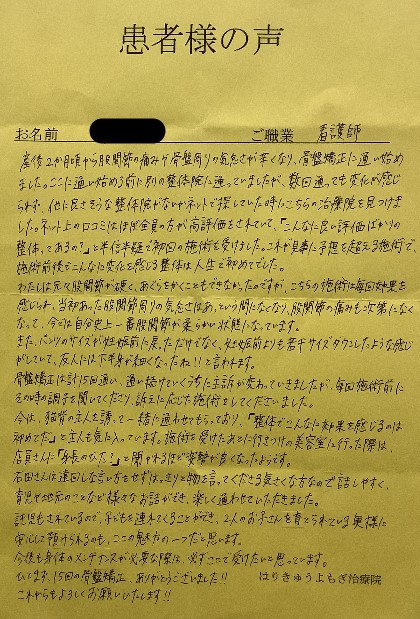 患者様の声
お名前 ご職業 看護師
産後2か月頃から股関節の痛みや骨盤周りの気だるさが辛くなり、骨盤矯正に通い始め
ました。ここに通い始める前に別の整体院に通っていましたが、数回通っても変化が感じ
られず、他に良さそうな整体院がないかネットで探していた時にこちらの治療院を見つけま
した。ネット上の口コミはほぼ全員の方が高評価をされていて、「こんなに良い評価ばかりの
整体、であるの?」と半信半疑で初回の施術を受けました。これが見事に予想を超える施術で、
施術前後でこんなに変化を感じる整体は人生で初めてでした。
わたしは元々股関節が硬く、あぐらをかくこともできなかったのですが、こちらの施術は毎回効果を
感じられ、当初あった股関節周りの気だるさはあっという間になくなり、股関節の痛みも次第になく
なって、今では自分史上一番股関節が柔らかい状態になっています。
また、パンツのサイズが妊娠前に戻っただけでなく、妊娠前よりも若干サイズダウンしたような感じ
がしていて、友人には「下半身が細くなったね!!」と言われます。
骨盤矯正は計15回通い、通い続けていくうちに主訴が変わっていきましたが、毎回施術前に
その時の調子を聞いてくださり、訴えに応じた施術をしてくださいました。
今は、猫背の主人を誘って一緒に通わせてもらっており、「整体でこんなに効果を感じるのは
初めてだ」と主人も気に入っています。施術を受けたあとに行きつけの美容室に行った際は、
店員さんに「身長のびた?」と聞かれるほど姿勢が良くなったようです。
石田さんは遠回しな言い方をせずはっきりと物を言ってくださる気さくな方なので話しやすく、
育児や地元のことなど様々なお話ができ、楽しく通わせていただきました。
託児もされているので、子どもを連れてくることができ、2人のお子さんを育てられている奥様に
安心して預けられるのも、ここの魅力の一つだと思います。
今後も身体のメンテナンスが必要な際は、必ずここで受けたいと思っています。
ひとまず、15回の骨盤矯正、ありがとうございました!! はりきゅうよもぎ治療院
これからもよろしくお願いいたします!!